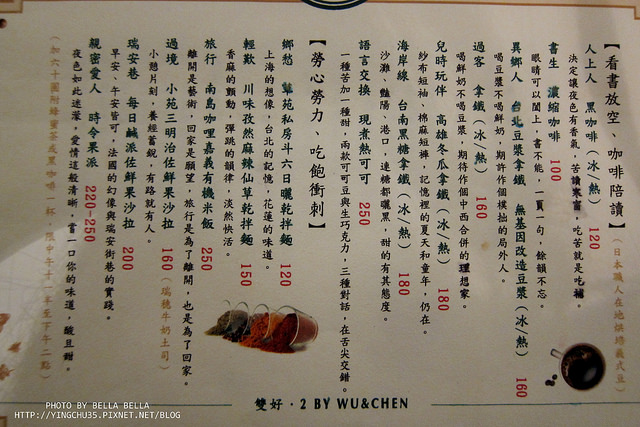 【看書放空、咖啡陪讀】（日本職人在地烘焙義式豆）
人上人 黑咖啡（冰/熱） 120
決定讓夜色有香氣，苦讀寒窗，吃苦就是吃補。
書生 濃縮咖啡 100
眼睛可以闔上，書不能，一頁一句，餘韻不忘。
異鄉人 台北豆漿拿鐵 無基因改造豆漿（冰/熱） 160
喝豆漿不喝鮮奶，期許作個樸拙的局外人。
過客 拿鐵（冰/熱） 160
喝鮮奶不喝豆漿，期待作個中西合併的理想家。
兒時玩伴 高雄冬瓜拿鐵（冰/熱） 180
紗布短袖、棉麻短褲，記憶裡的夏天和童年，仍在。
海岸線 台南黑糖拿鐵（冰/熱） 180
沙灘、豔陽、港口，連糖都曬黑，甜的有其態度。
語言交換 現煮熱可可 250
一種苦加一種甜，兩款可可豆與生巧克力，三種對話，在舌尖交錯。
【勞心勞力、吃飽衝刺】
鄉愁 苑私房斗六日曬乾拌麵 120
上海的想像，台北的記憶，花蓮的味道。
輕歎 川味孜然麻辣仙草乾拌麵 150
香麻的顫動，彈跳的韻律，淡然快活。
旅行 南島咖哩嘉義有機米飯 250
離開是藝術，回家是願望，旅行是為了離開，也是為了回家。
過境 小苑三明治佐鮮果沙拉 160（瑞穗牛奶土司）
小憩片刻，養經蓄銳，有路就有人。
瑞安巷 每日鹹派佐鮮果沙拉 200
早安、午安皆可，法國的幻像與瑞安街巷的實踐。
親密愛人 時令果派 220-250
夜色如此迷濛，愛情這般清晰，嘗一口你的味道，酸且甜。
（加六十圓附蜂蜜茶或黑咖啡一杯，限中午十一半至下午二點）
雙好・2 BY WU&CHEN
PHOTO BY BELLA BELLA
HTTP://YINGCHU35.PIXNET.NET/BLOG